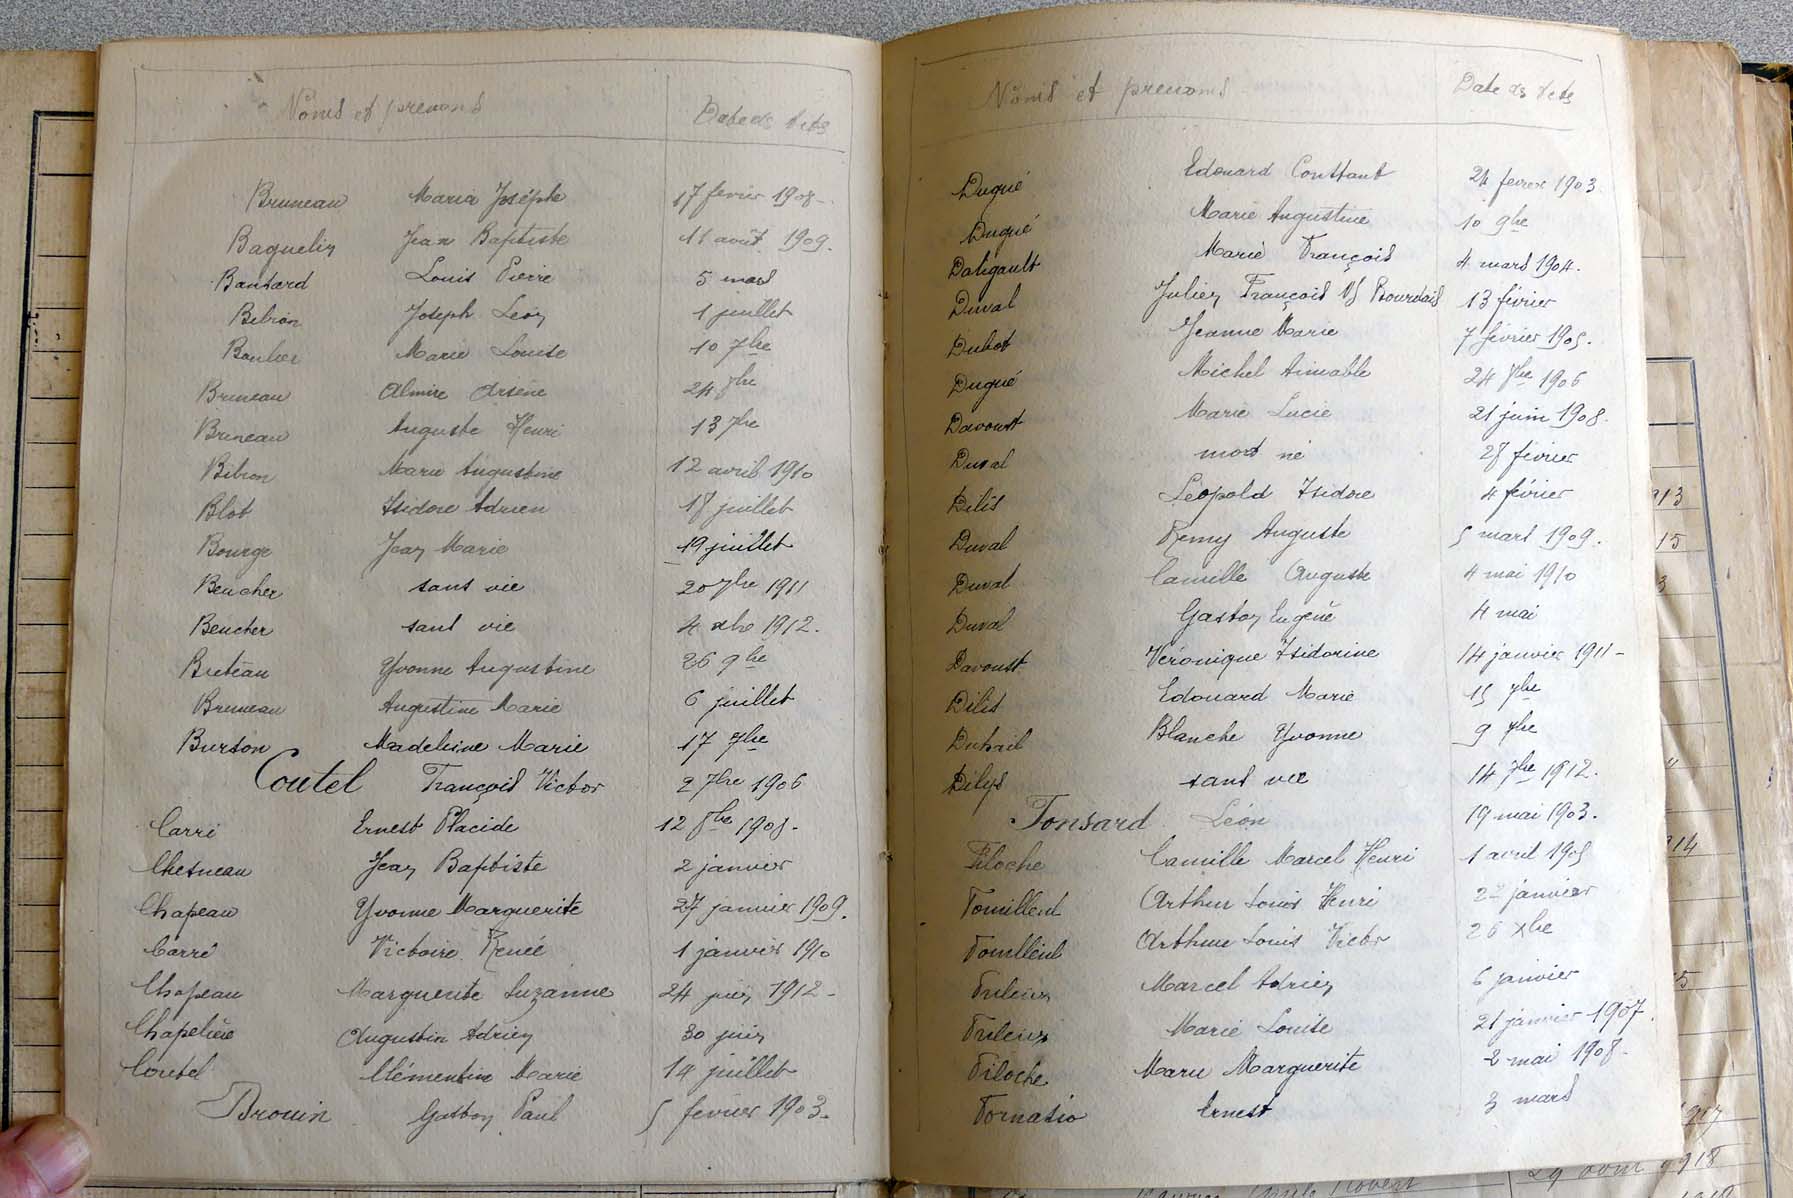 Noms et prenoms Date des Actes
Bruneau Maria Joséphe 17 fevrier 1908
Baguelin Jean Baptiste 11 août 1909.
Bansard Louis Pierre 5 mars
Bibron Joseph Léon 1 juillet
Marie Louise 10 7bre
Bruneau Almire Arsène 24 7bre
Bruneau Auguste Henri 13 7bre
Bibron Marie Augustine 12 avril 1910
Blot Isidore Adrien 18 juillet
Bourge Jean Marie 19 juillet
Beucher sans vie 20 7bre 1911
Beucher sans vie 4 xbre 1912.
Buteau Yvonne Augustine 26 9bre
Bruneau Augustine Marie 6 juillet
Burson Madeleine Marie 17 7bre
Coutel François Victor 2 7bre 1906
Carré Ernest Placide 12 8bre 1908.
Chesneau Jean Baptiste 2 janvier
Chapeau Yvonne Marguerite 27 janvier 1909.
Carré Victoire Renée 1 janvier 1910
Chapeau Marguerite Suzanne 24 juin 1912
Chapelière Augustin Adrien 30 juin
Coutel Clémentin Marie 14 juillet
Drouin Gaston Paul 5 fevrier 1903.
Noms et prenoms Date des Actes
Dugué Edouard Constant 24 fevrier 1903
Dugué Marie Augustine 10 9bre
Daligault Marie François 4 mars 1904.
Duval Julien François Vf Bourdais 13 février
Dubot Jeanne Marie 7 février 1905.
Dugué Michel Aimable 24 7bre 1906
Davoust Marie Lucie 21 juin 1908.
Duval mort né 28 février
Dilis Léopold Isidore 4 février
Duval Remy Auguste 5 mars 1909.
Duval Camille Auguste 4 mai 1910
Duval Gaston Eugène 4 mai
Davoust Véronique Isidorine 14 janvier 1911
Dilis Edouard Marie 15 7bre
Duhail Blanche Yvonne 9 7bre
Dilys sans vie 14 7bre 1912.
Fonsard Léon 19 mai 1903.
Filoche Camille Marcel Henri 1 avril 1905
Fouilleul Arthur Louis Henri 22 janvier
Fouilleul Arthur Louis Victor 26 xbre
Fuleux Marcel Adrien 6 janvier
Fuleux Marie Louise 21 janvier 1907.
Filoche Marie Marguerite 2 mai 1908.
Fornasio Ernest 3 mars